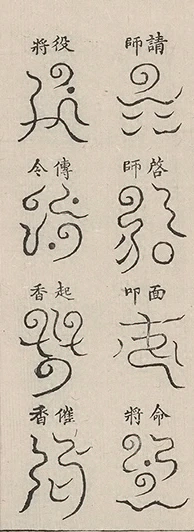 請師
啓師
面叩
命將
役將
傳令
起香
催香